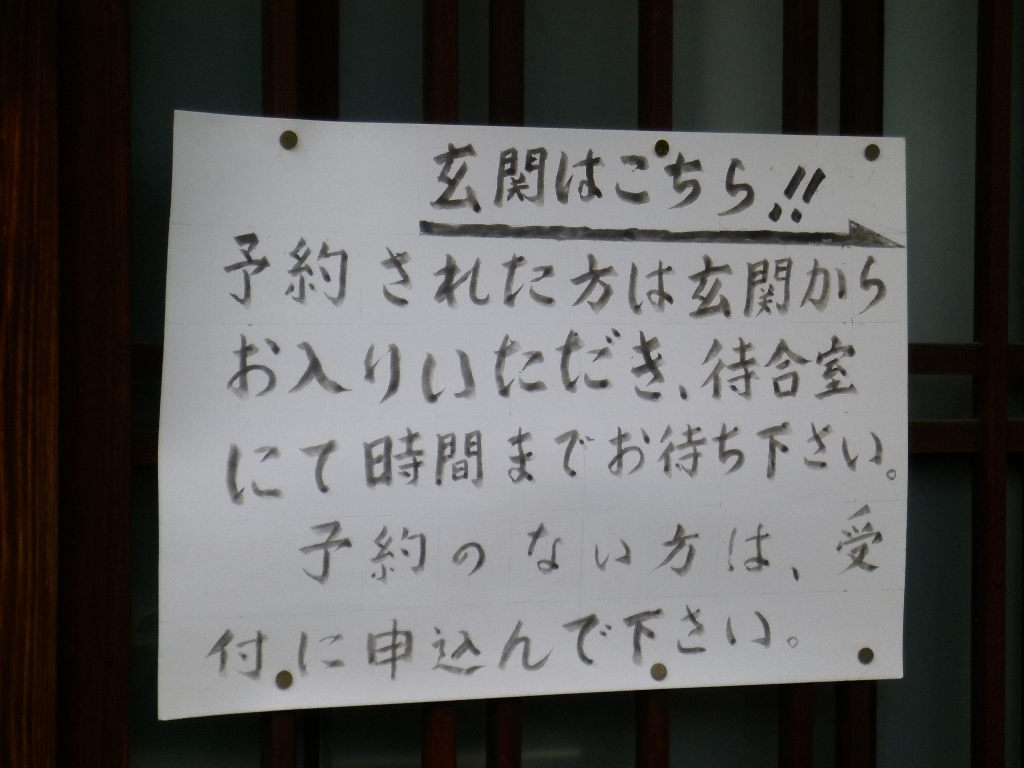 玄関はこちら!!
予約された方は玄関から
お入りいただき、待合室
にて時間までお待ち下さい。
予約のない方は、受
付に申込んで下さい。